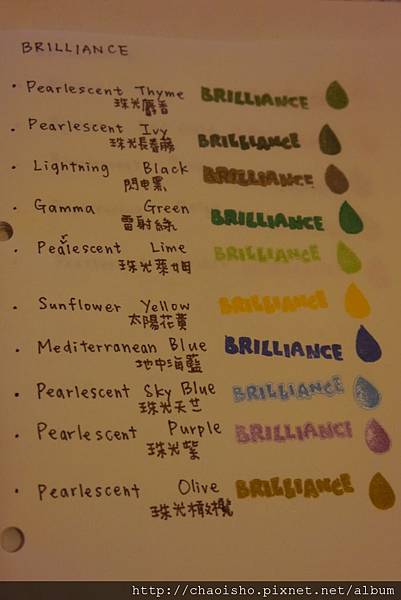 BRILLIANCE
· Pearlescent Thyme BRILLIANCE
珠光麝香
· Pearlescent Ivy BRILLIANCE
珠光長春藤
· Lightning Black BRILLIANCE
閃電黑
· Gamma Green BRILLIANCE
雷射綠
· Pearlescent Lime BRILLIANCE
珠光萊姆
· Sunflower Yellow BRILLIANCE
太陽花黃
· Mediterranean Blue BRILLIANCE
地中海藍
· Pearlescent Sky Blue BRILLIANCE
珠光天空
· Pearlescent Purple BRILLIANCE
珠光紫
· Pearlescent Olive BRILLIANCE
珠光橄欖
http://chaoisho.pixnet.net/album